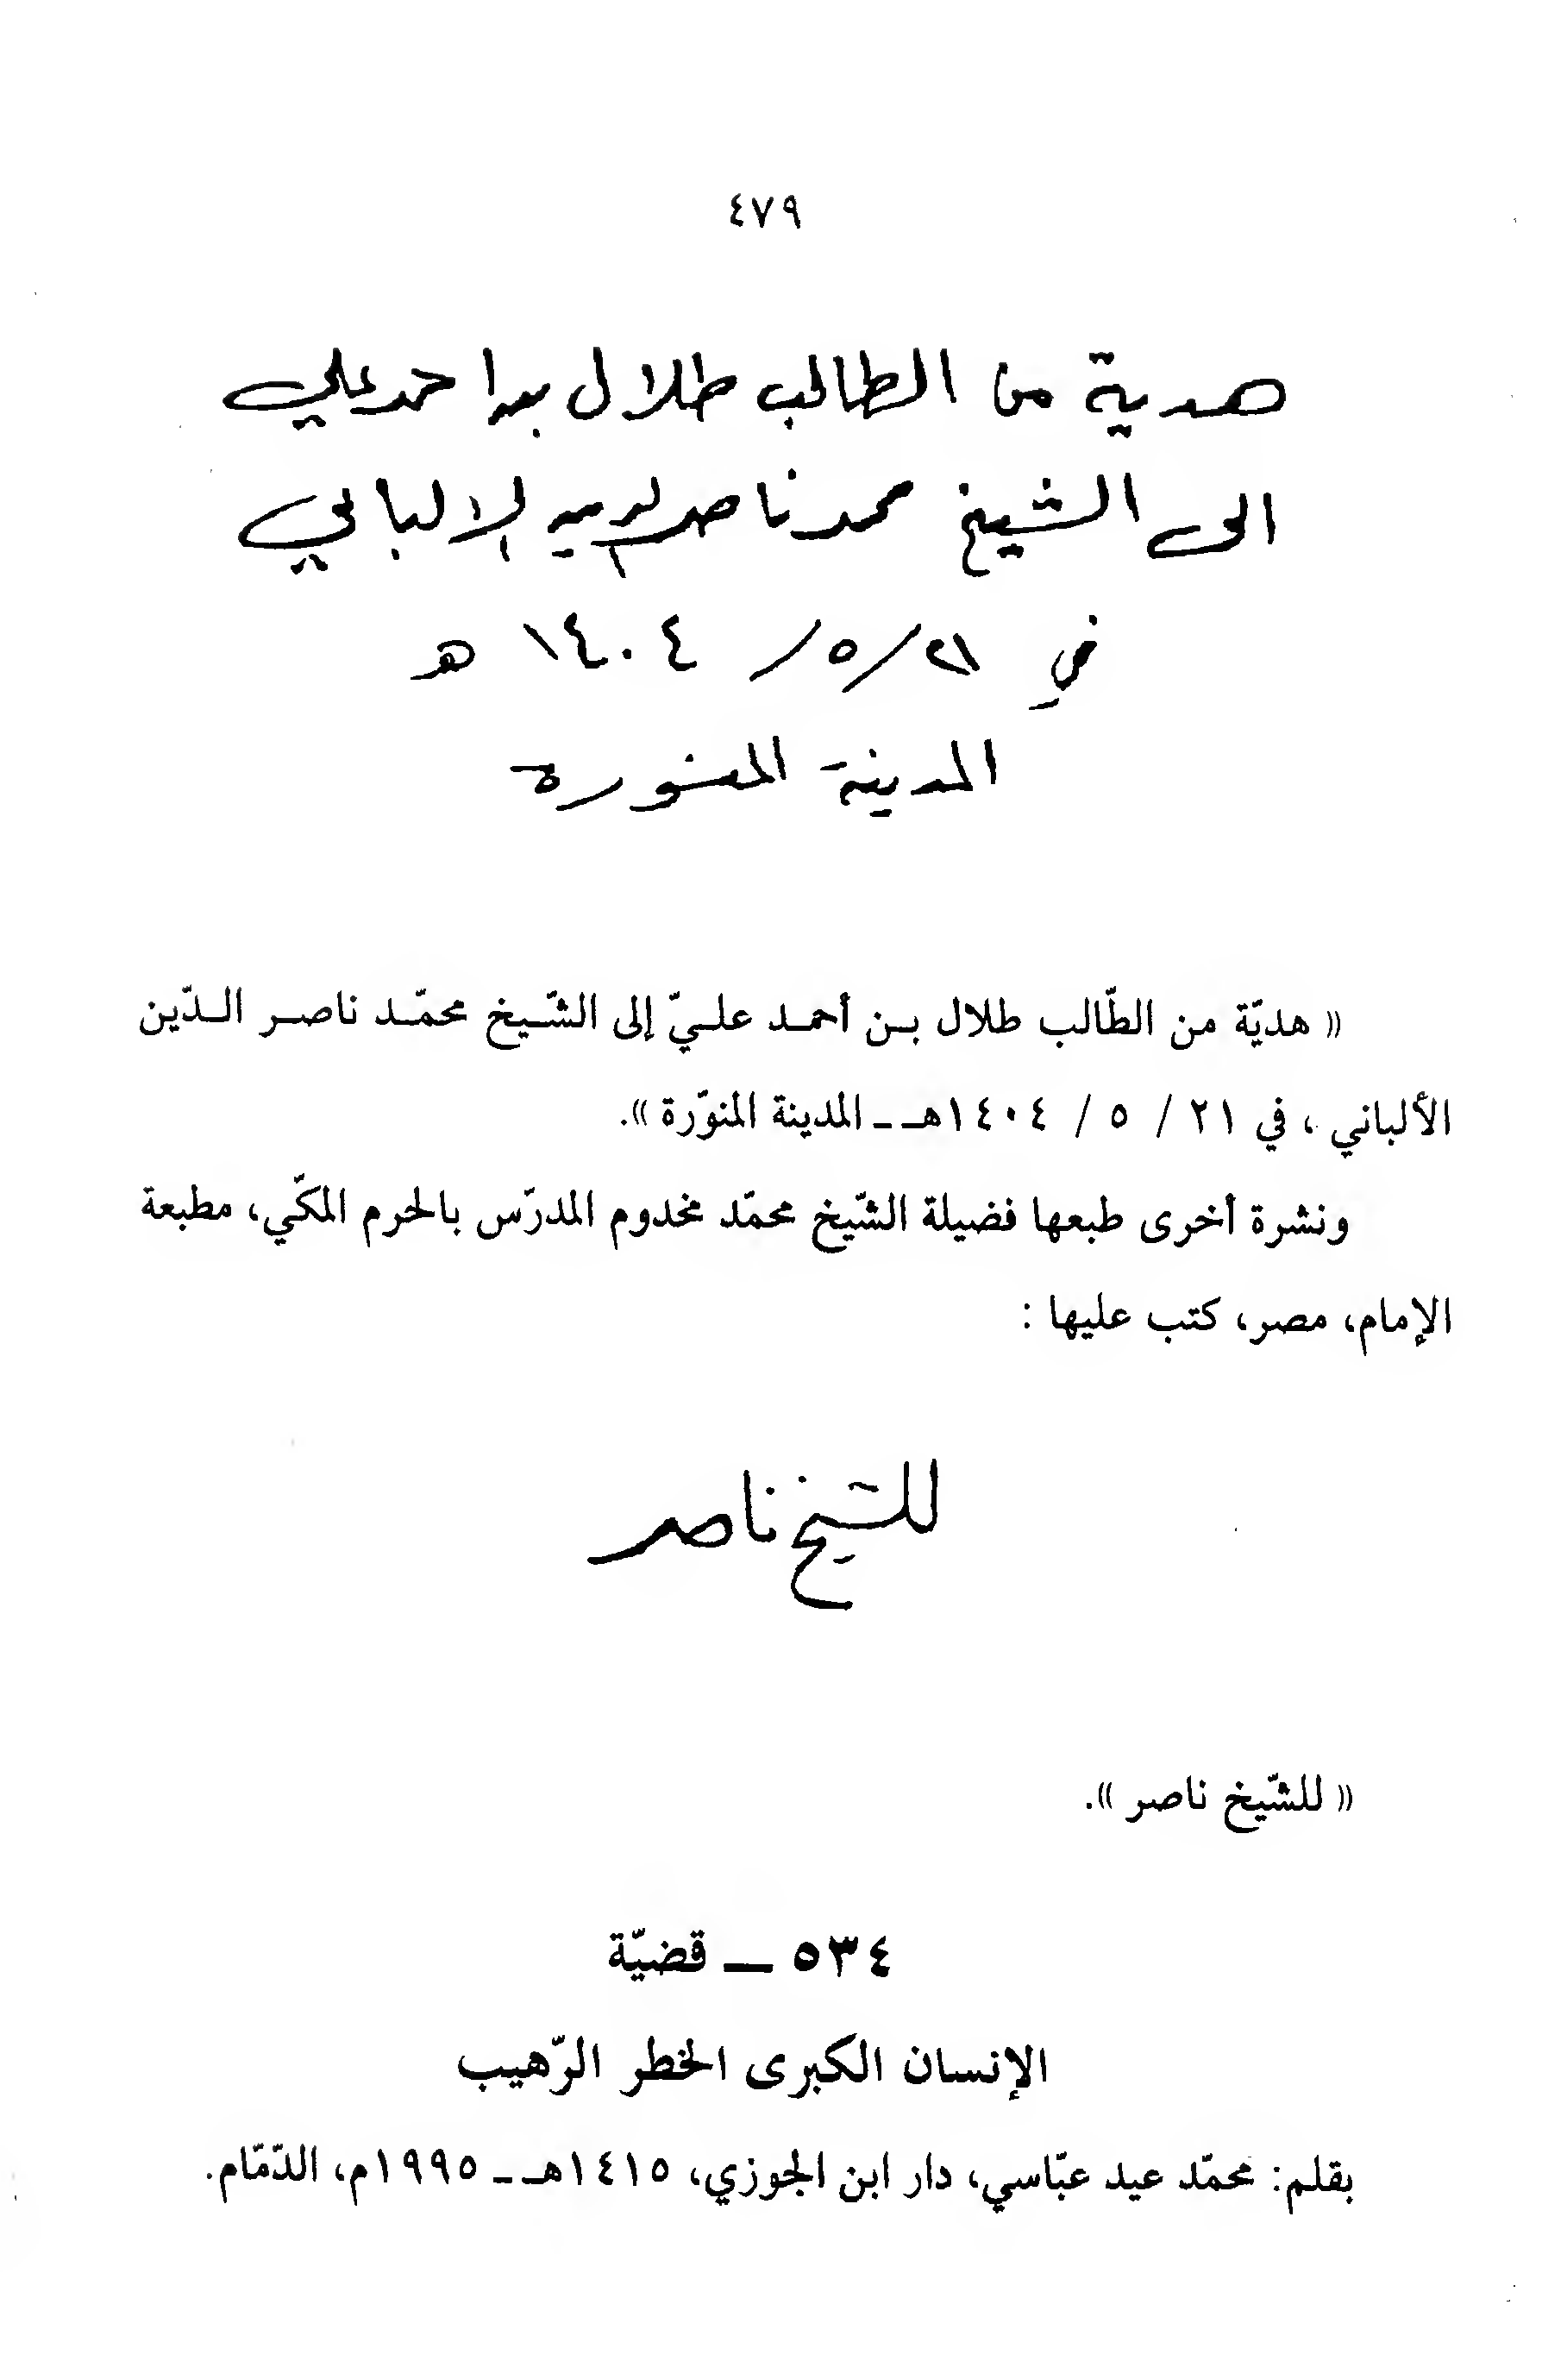 ٤٧٩
هدية من الطالب طلال بن احمد علي
الى الشيخ محمد ناصر الدين الالباني
في ٢١/ ٥/ ١٤٠٤ هـ
المدينة المنورة
« هديّة من الطّالب طلال بـن أحمـد علـيّ إلى الشّـيخ محمّـد ناصـر الـدّين
الألباني ، في ٢١ / ٥ / ١٤٠٤هـ ـ المدينة المنوّرة ».
ونشرة أخرى طبعها فضيلة الشّيخ محمّد مخدوم المدرّس بالحرم المكّي، مطبعة
الإمام، مصر، كتب عليها :
للشيخ ناصر
« للشّيخ ناصر ».
٥٣٤ ـ قضيّة
الإنسان الكبرى الخطر الرّهيب
بقلم: محمّد عيد عبّاسي، دار ابن الجوزي، ١٤١٥هـ ـ ١٩٩٥م، الدّمّام.